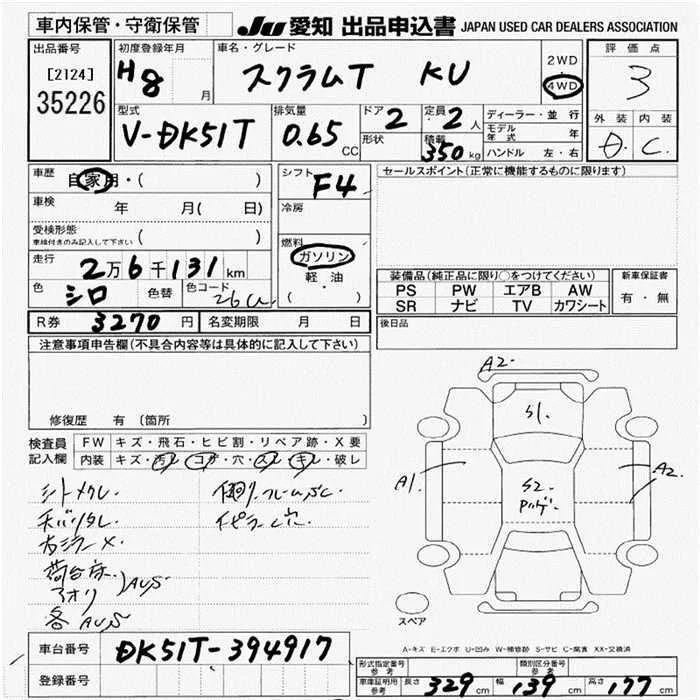 車内保管・守衛保管
JU 愛知 出品申込書 JAPAN USED CAR DEALERS ASSOCIATION
出品番号
[2124]
35226
初度登録年月
H8 月
車名・グレード
スクラムT KU
2WD
4WD
評価点
3
外装 内装
D. C.
型式
V-DK51T
排気量
0.65 CC
ドア 2
形状
定員 2 人
積載 350 kg
ディーラー・並行
モデル年式 年
ハンドル 左・右
車歴
自家用・( )
車検 年 月( 日)
受検形態
車検付きのみ記入して下さい ( )
走行
2万6千131km
色 シロ 色替 色コード 26U
シフト F4
冷房
燃料
ガソリン
軽・油
( ・ )
セールスポイント(正常に機能するものに限ります)
装備品(純正品に限り○をつけてください)
PS PW エアB AW
SR ナビ TV カワシート
新車保証書
有・無
R券 3270 円 名変期限 月 日
後日品
注意事項申告欄(不具合内容等は具体的に記入して下さい)
修復歴 有 (箇所 )
検査員記入欄
FW キズ・飛石・ヒビ割・リペア跡・X要
内装 キズ・汚レ・コゲ・穴・スレ・キレ・破レ
シートメクレ.
荷台床.
アオリ
AU,S
各 AU,S
A2
S1.
A1.
S2
A2.
スペア
A-キズ E-エクボ U-凹み W-補修跡 S-サビ C-腐食 XX-交換済
車台番号 DK51T-394917
登録番号
形式指定番号 参考
類別区分番号 参考
車庫証明用 参考 長さ 329 cm 幅 139 cm 高さ 177 cm